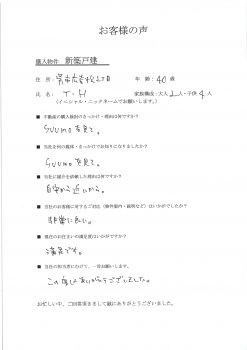 お客様の声
購入物件 新築戸建
住所: 年齢: 40歳
氏名: T・H 家族構成:大人2人・子供4人
(イニシャル・ニックネームでお願いします。)
■ 不動産の購入検討のきっかけ・理由は何ですか?
SUUMOを見て。
■ 当社を何の媒体・きっかけでお知りになりましたか?
SUUMOを見て。
■ 当社に紹介を依頼した理由は何ですか?
自宅から近いから。
■ 当社のお客様に対するご対応(物件案内・説明など)はいかがでしたか?
非常に良い。
■ 現在のお住まいの満足度はいかがですか?
満足です。
■ 当社の担当者にむけて、一言お願いします。
この度はありがとうございました。
お忙しい中、ご回答頂きまして誠にありがとうございました。